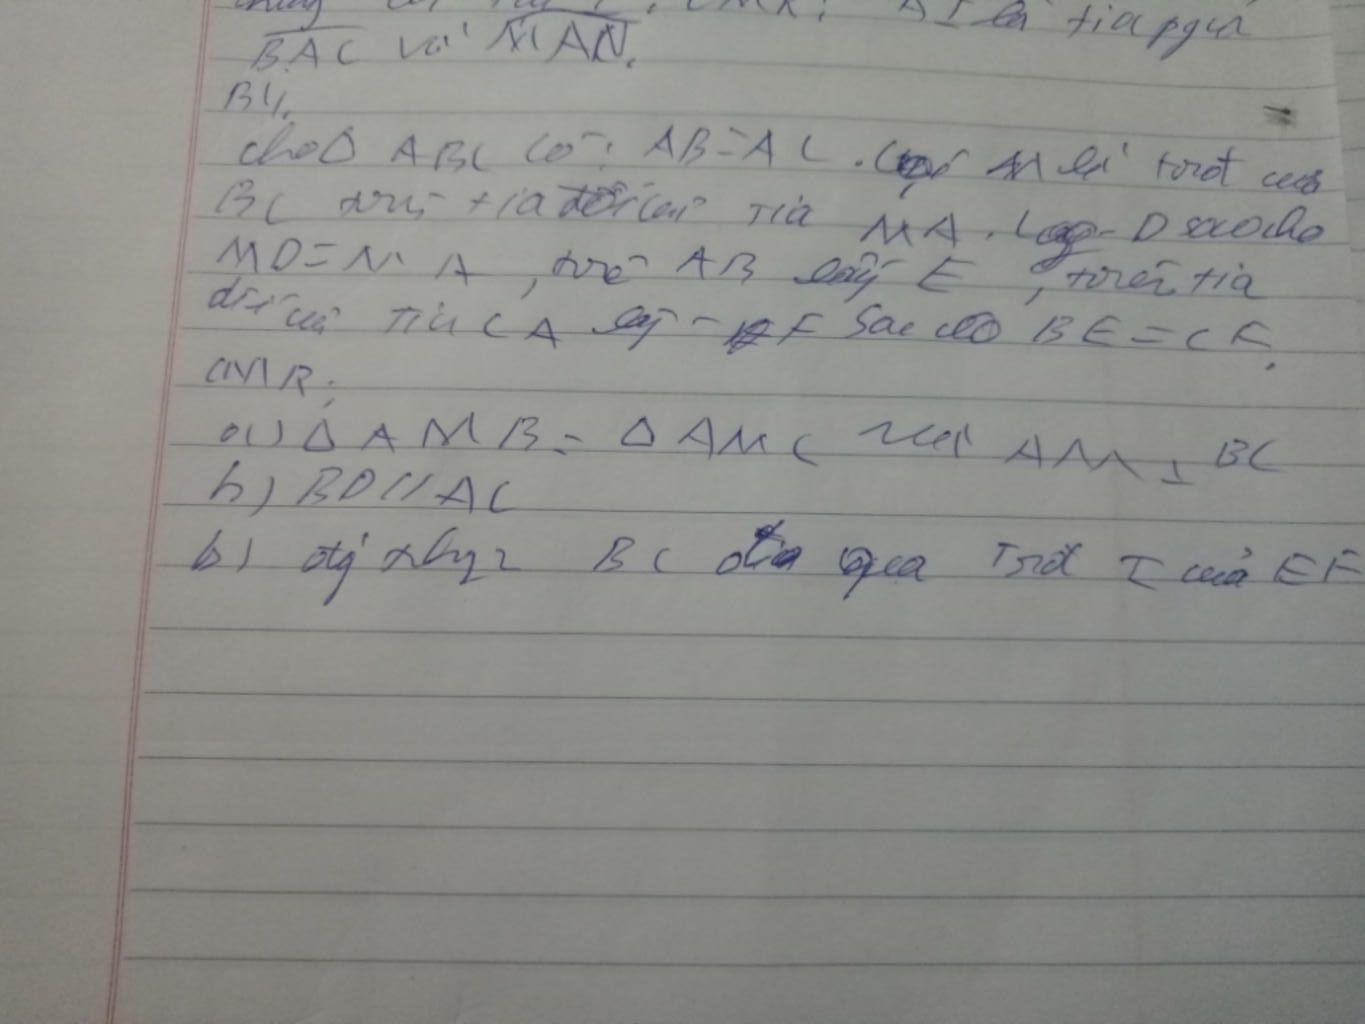 CMR: AI là tia pgiá
BAC và MAN.
B4.
cho Δ ABC có: AB=AC. Gọi M là trđ của
BC trên tia đối của tia MA. Lấy D sao cho
MD=MA, trên AB lấy E, trên tia
đối của tia CA lấy F sao cho BE=CF.
CMR:
a) Δ AMB = Δ AMC và AM ⊥ BC
b) BD // AC
b) BC đi qua Trđ I của EF